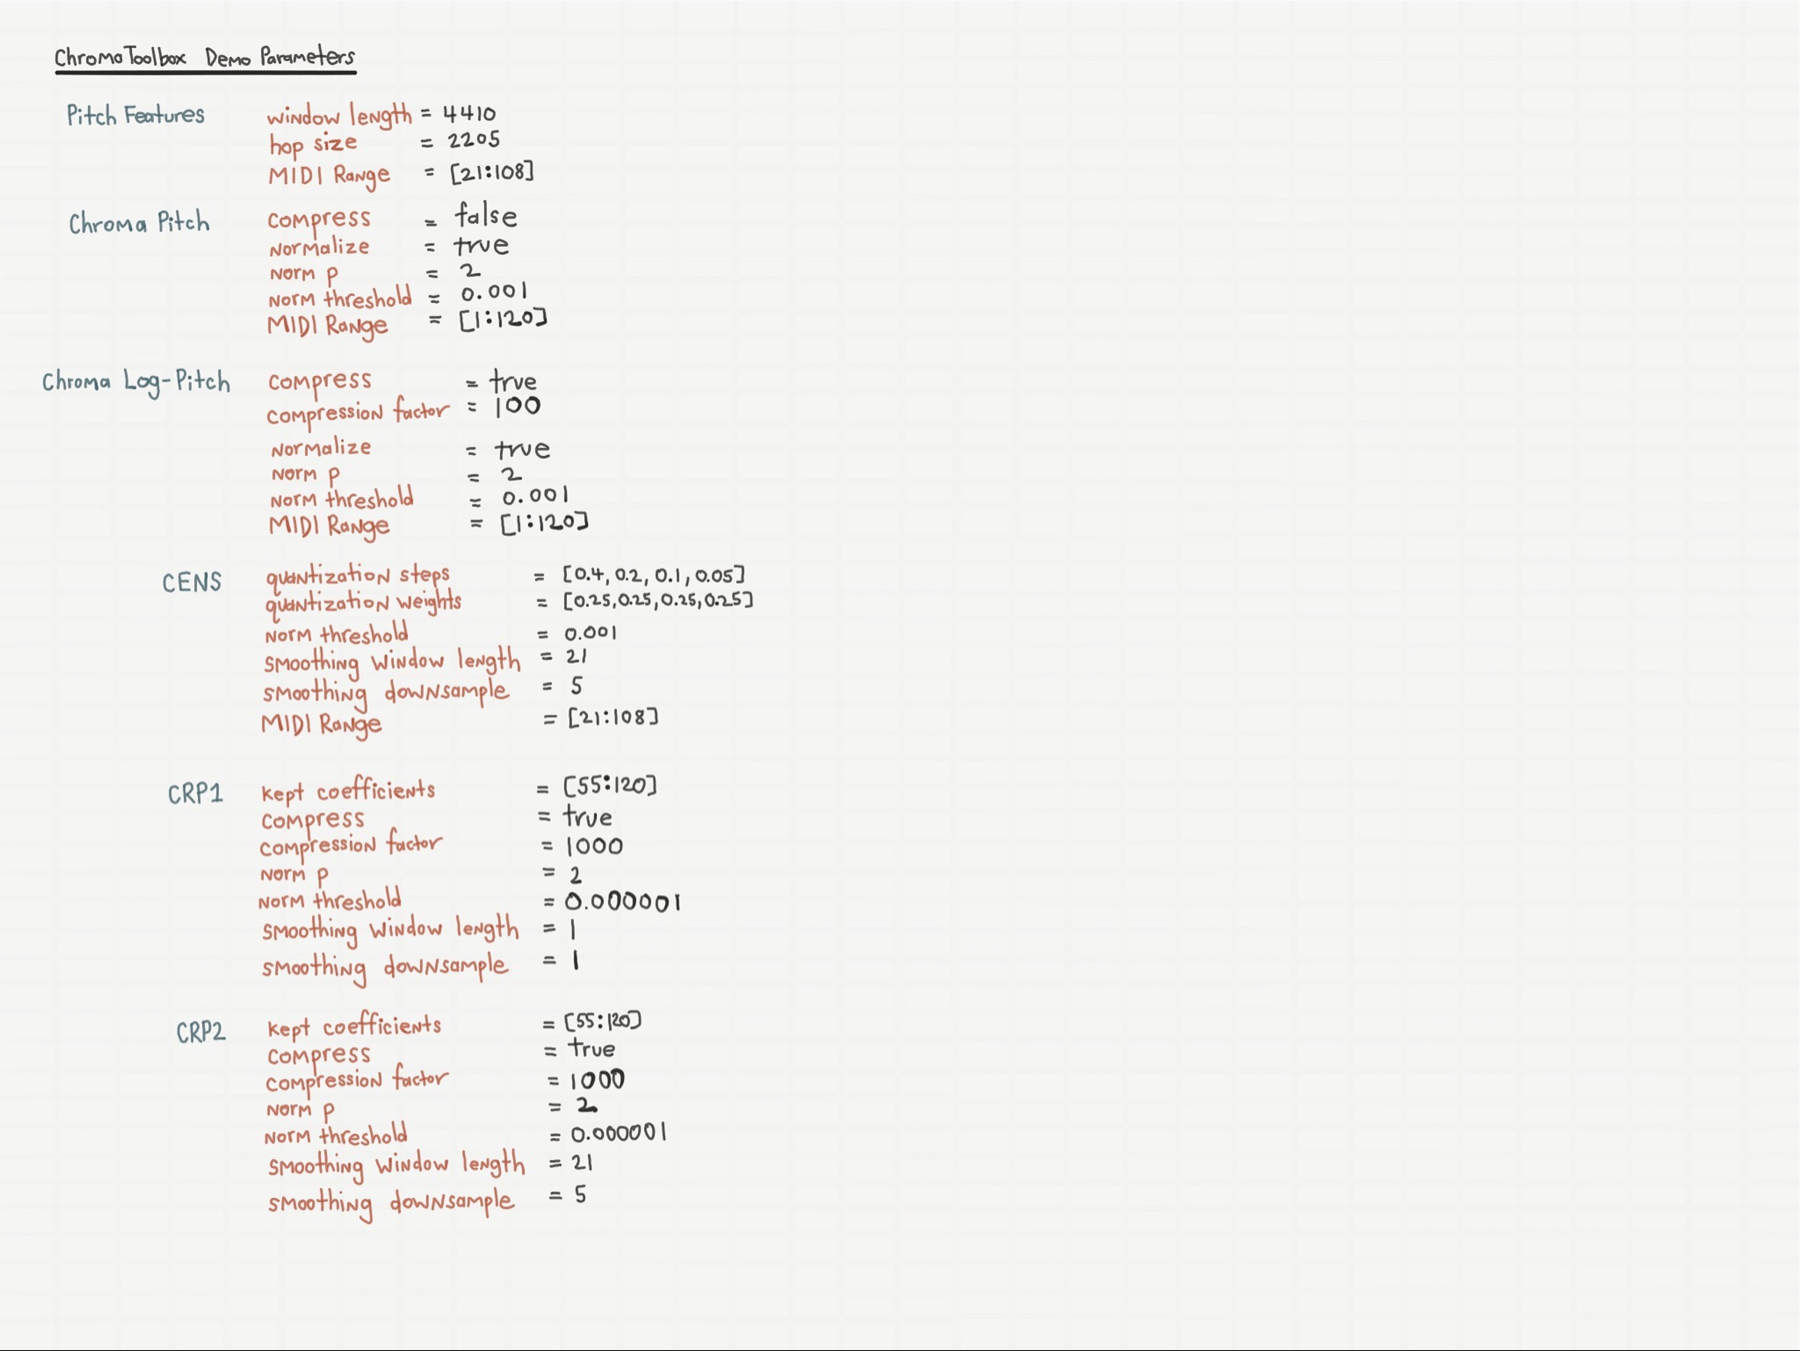 Chroma Toolbox Demo Parameters
Pitch Features window length = 4410
hop size = 2205
MIDI Range = [21:108]
Chroma Pitch compress = false
normalize = true
norm p = 2
norm threshold = 0.001
MIDI Range = [1:120]
Chroma Log-Pitch compress = true
compression factor = 100
normalize = true
norm p = 2
norm threshold = 0.001
MIDI Range = [1:120]
CENS quantization steps = [0.4, 0.2, 0.1, 0.05]
quantization weights = [0.25, 0.25, 0.25, 0.25]
norm threshold = 0.001
smoothing window length = 21
smoothing downsample = 5
MIDI Range = [21:108]
CRP1 kept coefficients = [55:120]
compress = true
compression factor = 1000
norm p = 2
norm threshold = 0.000001
smoothing window length = 1
smoothing downsample = 1
CRP2 kept coefficients = [55:120]
compress = true
compression factor = 1000
norm p = 2
norm threshold = 0.000001
smoothing window length = 21
smoothing downsample = 5